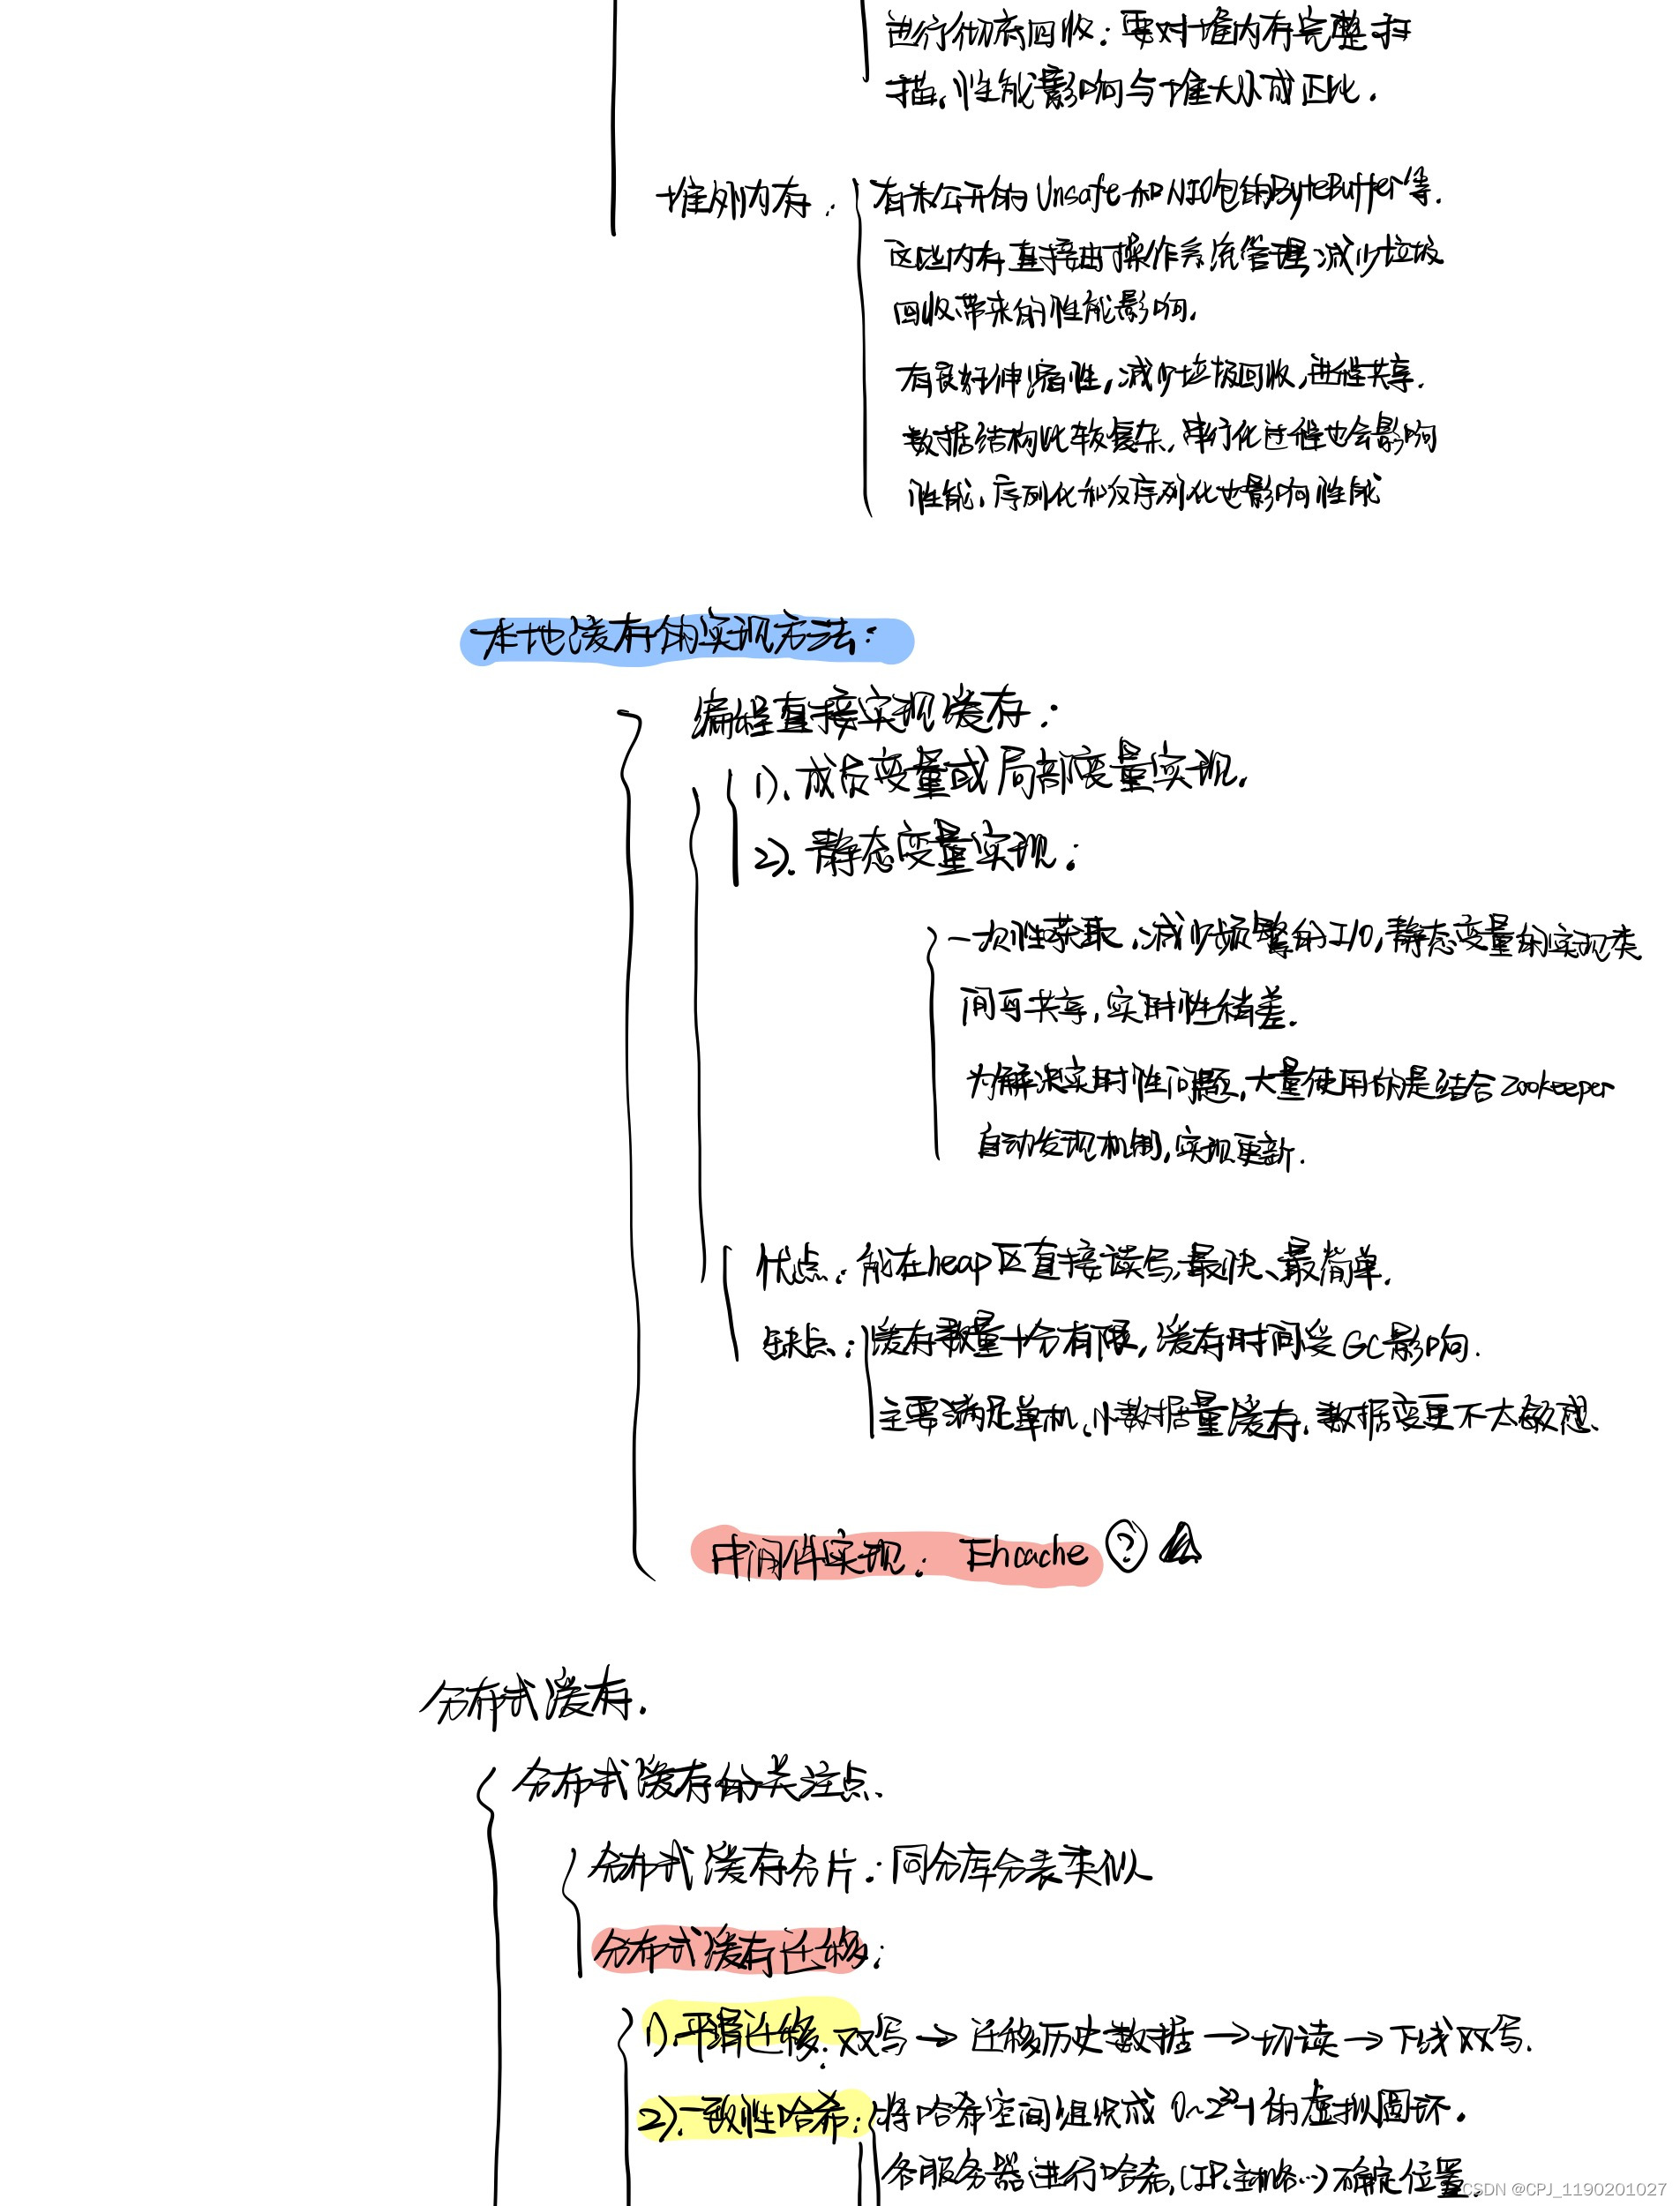 进行彻底回收:要对堆内存完整扫
描,性能影响与堆大小成正比.
堆外内存:
有未公开的Unsafe和NIO包的ByteBuffer等.
这些内存直接由操作系统管理,减少垃圾
回收带来的性能影响.
有良好伸缩性,减少垃圾回收,进程共享.
数据结构比较复杂,串行化过程也会影响
性能,序列化和反序列化也影响性能
本地缓存的实现方法:
编程直接实现缓存:
1).成员变量或局部变量实现.
2).静态变量实现:
一次性获取,减少频繁的I/O,静态变量的实现类
间可共享,实时性稍差.
为解决实时性问题,大量使用的是结合zookeeper
自动发现机制,实现更新.
优点:能在heap区直接读写,最快、最简单.
缺点:缓存数量十分有限,缓存时间受GC影响.
主要满足单机、小数据量缓存,数据变更不太敏感.
中间件实现: Ehcache ?
分布式缓存.
分布式缓存的关注点.
分布式缓存分片:同分库分表类似
分布式缓存迁移:
1).平滑迁移:双写→迁移历史数据→切读→下线双写.
2).一致性哈希:将哈希空间组织成 0~2³²-1的虚拟圆环.
各服务器进行哈希,(IP.主机名…)确定位置.
CSDN @CPJ_1190201027